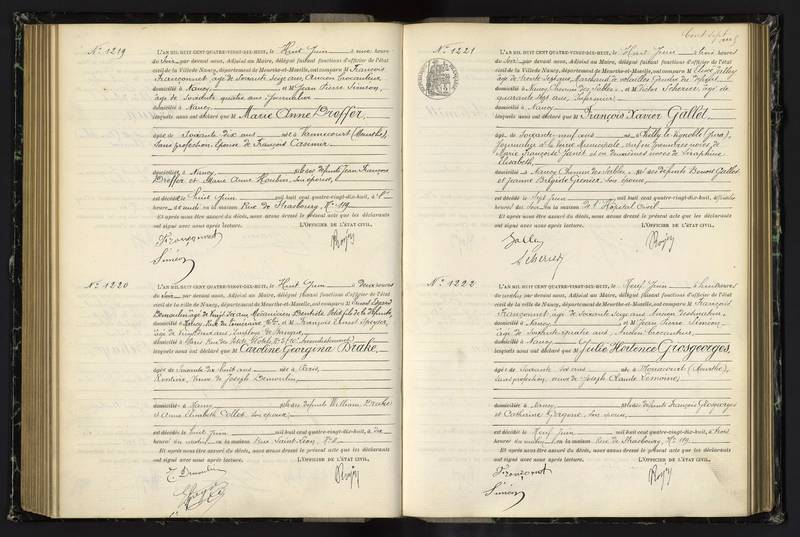 Nº 1219
L'AN MIL HUIT CENT QUATRE-VINGT-DIX-HUIT, le Huit Juin à une heure
du Soir par devant nous, Adjoint au Maire, délégué faisant fonctions d'officier de l'état
civil de la Ville de Nancy, département de Meurthe-et-Moselle, ont comparu M François
Françonnet, âgé de Soixante Seize ans, Ancien
domicilié à Nancy, et M Jean Pierre Siméon,
âgé de Soixante quatre ans Journalier
domicilié à Nancy
lesquels nous ont déclaré que Marie Anne Droffer,
âgée de Soixante dix ans née à Vannecourt (Meurthe),
Sans profession, Epouse de François Casimir
domiciliée à Nancy fille des défunts Jean François
Droffer et Marie Anne Houbin, son épouse,
est décédée le huit Juin mil huit cent quatre-vingt-dix-huit, à
heure du midi en la maison Rue de Strasbourg, Nº 119.
Et après nous être assuré du décès, nous avons dressé le présent acte que les déclarants
ont signé avec nous après lecture. L'OFFICIER DE L'ÉTAT CIVIL,
Françonnet
Siméon
Nº 1220
L'AN MIL HUIT CENT QUATRE-VINGT-DIX-HUIT, le Huit Juin à Deux heures
du Soir par devant nous, Adjoint au Maire, délégué faisant fonctions d'officier de l'état
civil de la ville de Nancy, département de Meurthe-et-Moselle, ont comparu M Ernest
Demoulin âgé de vingt six ans Mécanicien petit fils de la défunte
domicilié à Nancy, Rue et M François Ernest
âgé de ans, Employé de Banque
domicilié à Paris Rue des Petits Hôtels
lesquels nous ont déclaré que Caroline Georgina Brake,
âgée de Soixante dix huit ans née à Paris,
Rentière, Veuve de Joseph Demoulin,
domiciliée à Nancy fille des défunts William Brake
et Anne Elisabeth Collet, son épouse,
est décédée le huit Juin mil huit cent quatre-vingt-dix-huit, à dix
heures du matin en la maison Rue Saint-Léon, Nº
Et après nous être assuré du décès, nous avons dressé le présent acte que les déclarants
ont signé avec nous après lecture. L'OFFICIER DE L'ÉTAT CIVIL,
E. Demoulin
Cent Sept
Nº 1221
L'AN MIL HUIT CENT QUATRE-VINGT-DIX-HUIT, le Huit Juin à trois heures
du Soir par devant nous, Adjoint au Maire, délégué faisant fonctions d'officier de l'état
civil de la Ville de Nancy, département de Meurthe-et-Moselle, ont comparu M
âgé de trente sept ans, Marchand de volailles Gendre du défunt
domicilié à Nancy Chemin des Sables, et M Victor Scherrer, âgé de
quarante sept ans, Infirmier
domicilié à Nancy
lesquels nous ont déclaré que François Xavier Gallet,
âgé de Soixante neuf ans né à (Jura),
Journalier à la Voirie Municipale, veuf en premières noces de
Marie Françoise Janet et en deuxièmes noces de Séraphine
Elisabeth
domicilié à Nancy Chemin des Sables, fils des défunts Benoit Gallet
et Jeanne Brigide Grenier, son épouse
est décédé le Sept Juin mil huit cent quatre-vingt-dix-huit,
heures du Soir en la maison de l'Hôpital Civil
Et après nous être assuré du décès, nous avons dressé le présent acte que les déclarants
ont signé avec nous après lecture. L'OFFICIER DE L'ÉTAT CIVIL,
Nº 1222
L'AN MIL HUIT CENT QUATRE-VINGT-DIX-HUIT, le Neuf Juin à heures
du matin par devant nous, Adjoint au Maire, délégué faisant fonctions d'officier de l'état
civil de la ville de Nancy, département de Meurthe-et-Moselle, ont comparu M François
Françonnet, âgé de Soixante Seize ans Ancien
domicilié à Nancy et M Jean Pierre Siméon,
âgé de Soixante quatre ans,
domicilié à Nancy
lesquels nous ont déclaré que Julie Hortence Grosgeorges,
âgée de Soixante dix ans née à Moncourt (Meurthe),
Sans profession, veuve de Joseph Claude Lemoine,
domiciliée à Nancy fille des défunts François Grosgeorges
et Catherine son épouse,
est décédée le Neuf Juin mil huit cent quatre-vingt-dix-huit, à trois
heures du matin en la maison Rue de Strasbourg, Nº 119.
Et après nous être assuré du décès, nous avons dressé le présent acte que les déclarants
ont signé avec nous après lecture. L'OFFICIER DE L'ÉTAT CIVIL,
Françonnet
Siméon